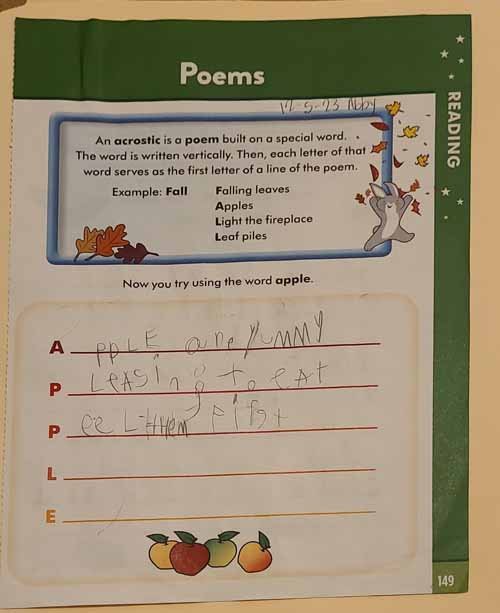 Poems
12-5-23 Abby
READING
An acrostic is a poem built on a special word.
The word is written vertically. Then, each letter of that
word serves as the first letter of a line of the poem.
Example: Fall Falling leaves
Apples
Light the fireplace
Leaf piles
Now you try using the word apple.
A ppLE are yuMMY
P LeASing to eAt
P eeL tHem first
L
E
149